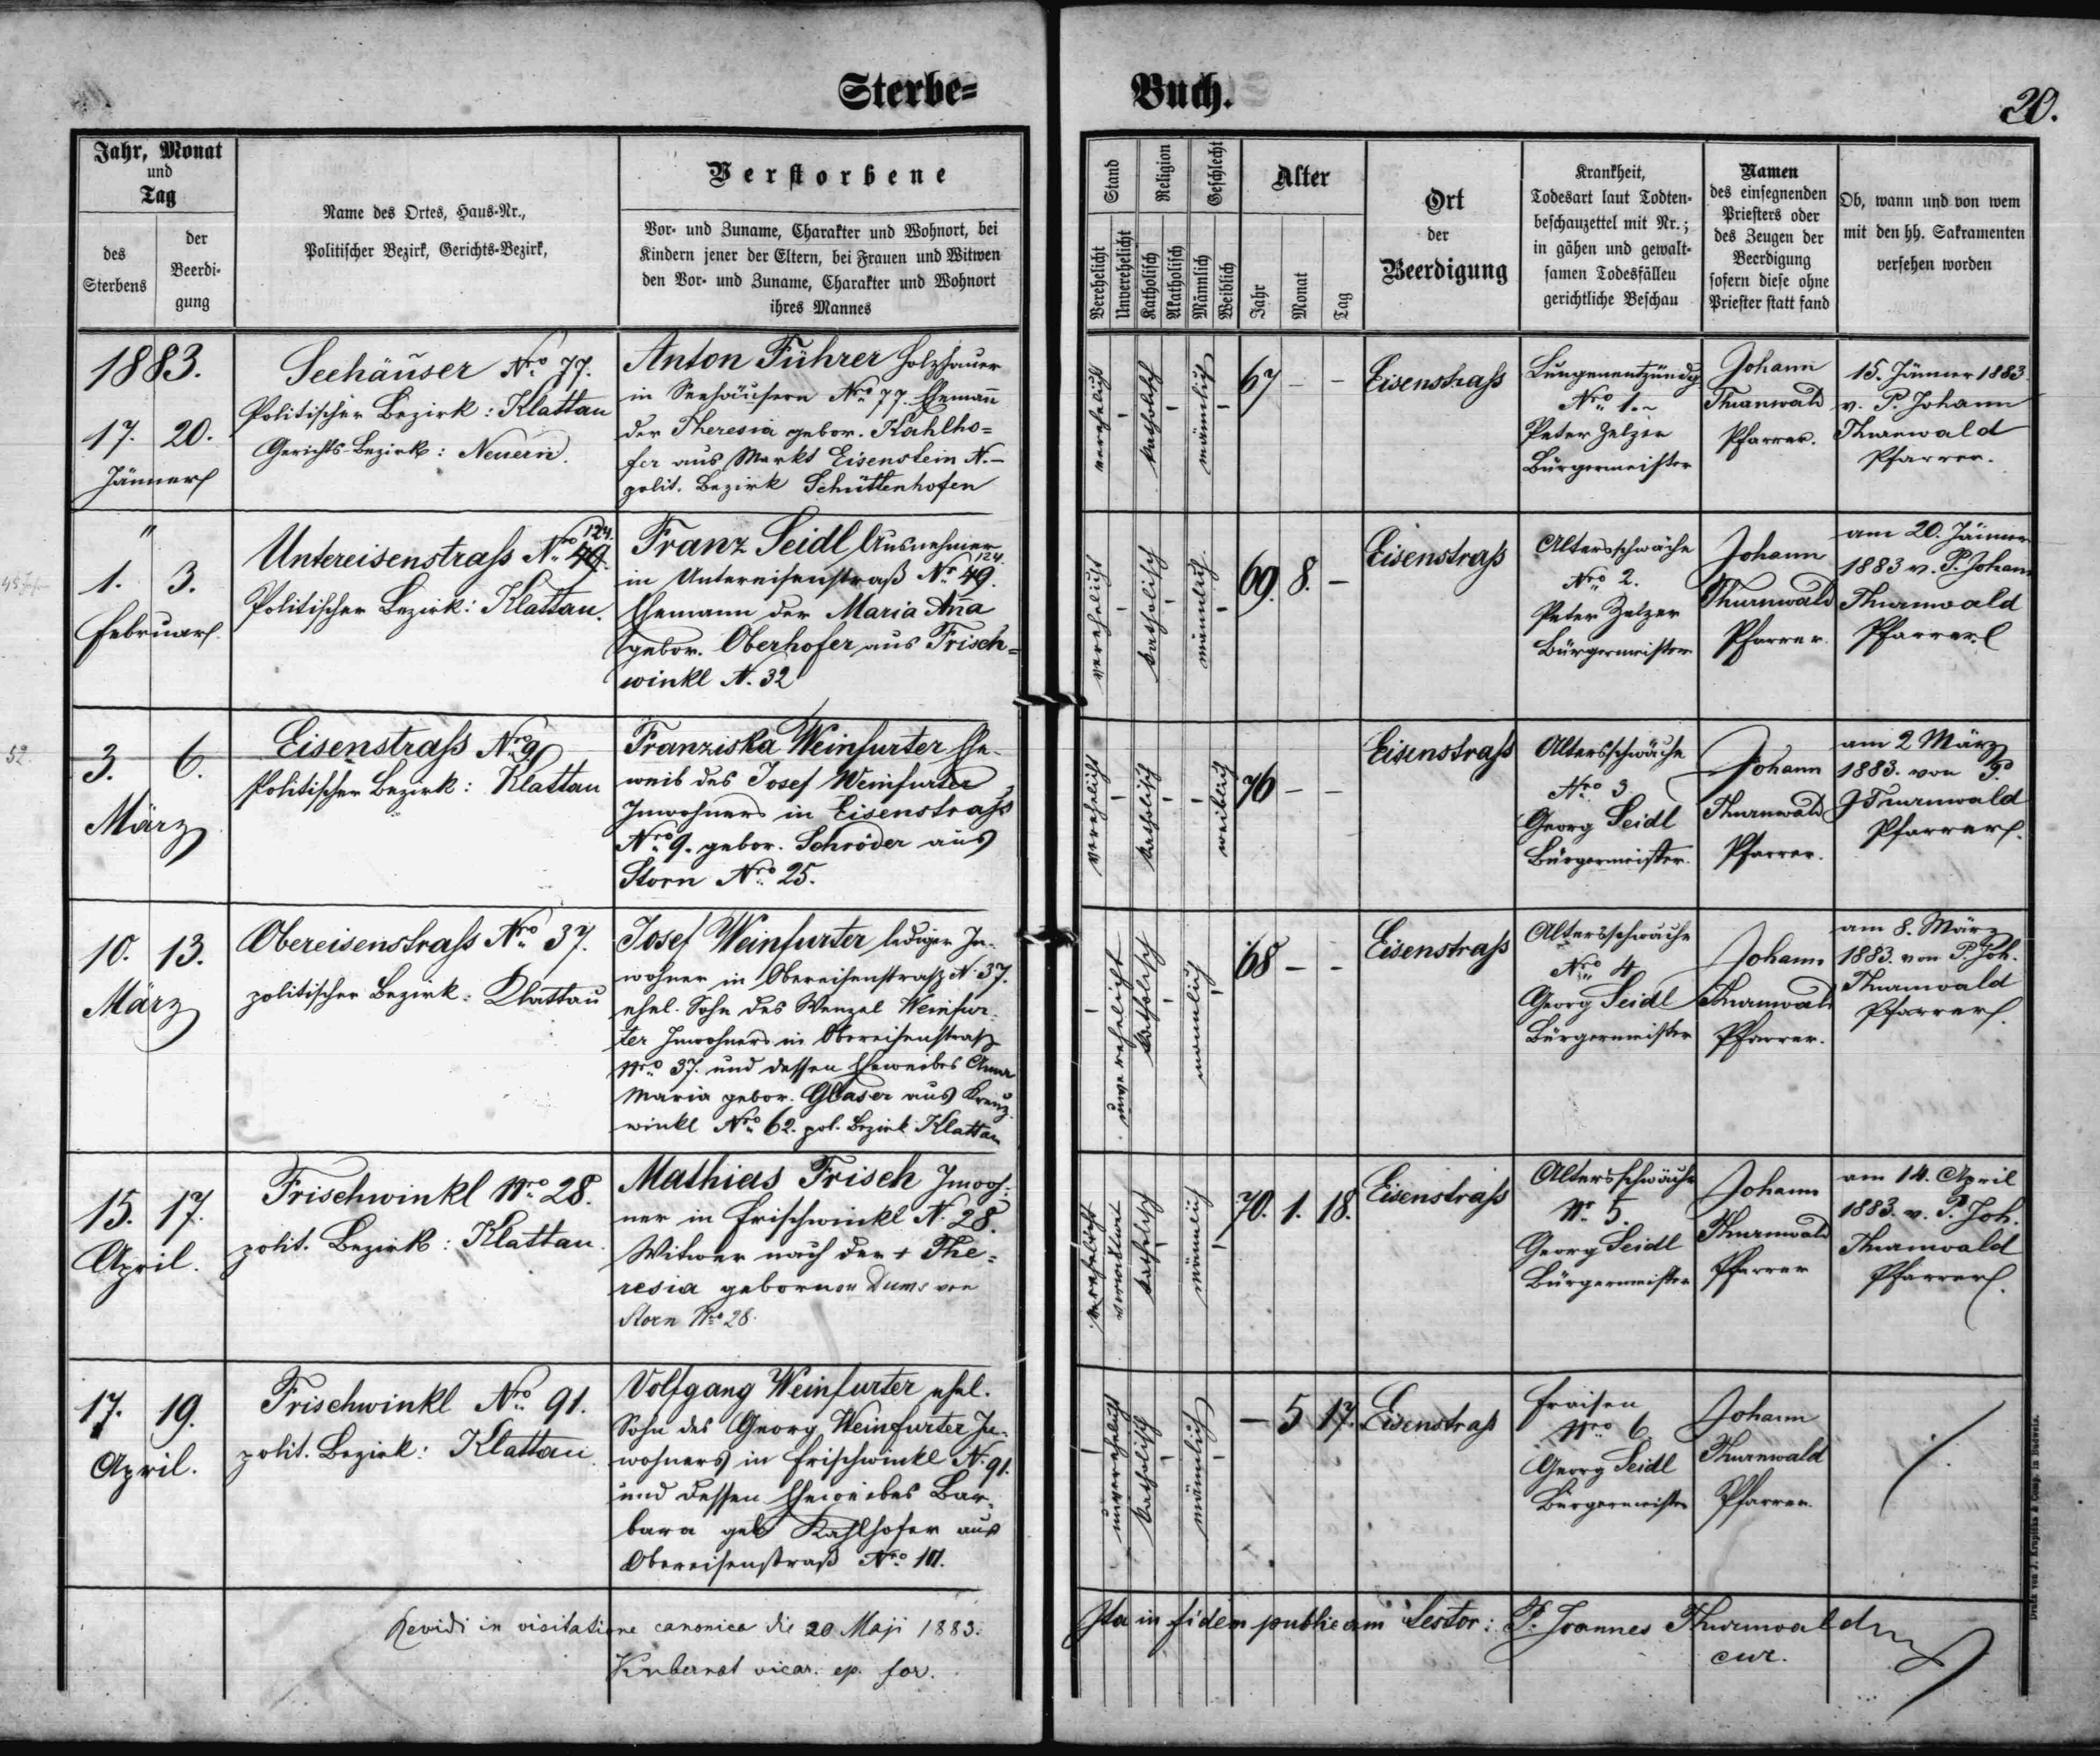 Sterbe= Buch.
20.
Jahr, Monat
und
Tag
des
Sterbens
der
Beerdi-
gung
Name des Ortes, Haus-Nr.,
Politischer Bezirk, Gerichts-Bezirk,
Verstorbene
Vor- und Zuname, Charakter und Wohnort, bei
Kindern jener der Eltern, bei Frauen und Witwen
den Vor- und Zuname, Charakter und Wohnort
ihres Mannes
Stand
Verehelicht
Unverehelicht
Religion
Katholisch
Akatholisch
Geschlecht
Männlich
Weiblich
Alter
Jahr
Monat
Tag
Ort
der
Beerdigung
Krankheit,
Todesart laut Todten-
beschauzettel mit Nr.;
in gähen und gewalt-
samen Todesfällen
gerichtliche Beschau
Namen
des einsegnenden
Priesters oder
des Zeugen der
Beerdigung
sofern diese ohne
Priester statt fand
Ob, wann und von wem
mit den hh. Sakramenten
versehen worden
1883.
17. 20.
Jänner
Seehäuser Nro 77.
Politischer Bezirk: Klattau
Gerichts-Bezirk: Neuern.
Anton Führer Holzhauer
in Seehäusern Nro 77. Ehemann
der Theresia gebor. Kahlho=
fer aus Markt Eisenstein N.–
polit. Bezirk Schüttenhofen
verehelicht
katholisch
männlich
67 – –
Eisenstrass
Lungenentzündg
Nro 1.
Peter Zelzer
Bürgermeister
Johann
Thurnwald
Pfarrer.
15. Jänner 1883
v. P. Johann
Thurnwald
Pfarrer.
"
1. 3.
Februar
Untereisenstrass Nro 49. 124.
Politischer Bezirk: Klattau.
Franz Seidl Ausnehmer
in Untereisenstraß Nr 49. 124.
Ehemann der Maria Anna
gebor. Oberhofer aus Frisch=
winkl N. 32
verehelicht
katholisch
männlich
69. 8. –
Eisenstrass
Altersschwäche
Nro 2.
Peter Zelzer
Bürgermeister
Johann
Thurnwald
Pfarrer.
am 20. Jänner
1883 v. P. Johann
Thurnwald
Pfarrer
52.
3. 6.
März
Eisenstrass Nro 9.
Politischer Bezirk: Klattau
Franziska Weinfurter Ehe-
weib des Josef Weinfurter
Inwohners in Eisenstrass
Nro 9. gebor. Schröder aus
Storn Nro 25.
verehelicht
katholisch
weiblich
76 – –
Eisenstrass
Altersschwäche
Nro 3
Georg Seidl
Bürgermeister.
Johann
Thurnwald
Pfarrer.
am 2 März
1883. von P.
J Thurnwald
Pfarrer.
10. 13.
März
Obereisenstrass Nro 37.
politischer Bezirk: Klattau
Josef Weinfurter lediger In-
wohner in Obereisenstraß N. 37.
ehel. Sohn des Wenzel Weinfur-
ter Inwohners in Obereisenstraß
Nro 37. und dessen Eheweibes Anna
Maria gebor. Glaser aus Kreuz-
winkl Nro 62. pol. Bezirk Klattau
unverehelicht
katholisch
männlich
68 – –
Eisenstrass
Altersschwäche
Nro 4
Georg Seidl
Bürgermeister
Johann
Thurnwald
Pfarrer.
am 8. März
1883. von P. Joh.
Thurnwald
Pfarrer.
15. 17.
April.
Frischwinkl Nro 28.
polit. Bezirk: Klattau.
Mathias Frisch Inwoh=
ner in Frischwinkl N. 28.
Witwer nach der + The=
resia gebornen Dums von
Storn Nro 28.
verehelicht
verwitwet
katholisch
männlich
70. 1. 18.
Eisenstrass
Altersschwäche
Nr. 5.
Georg Seidl
Bürgermeister
Johann
Thurnwald
Pfarrer
am 14. April
1883. v. P. Joh.
Thurnwald
Pfarrer.
17. 19.
April.
Frischwinkl Nro 91.
polit. Bezirk: Klattau.
Volfgang Weinfurter ehel.
Sohn des Georg Weinfurter In-
wohners in Frischwinkl N. 91.
und dessen Eheweibes Bar-
bara geb Kahlhofer aus
Obereisenstraß Nro
unverehelicht
katholisch
männlich
– 5 17.
Eisenstrass
Fraisen
Nro 6.
Georg Seidl
Bürgermeister
Johann
Thurnwald
Pfarrer
Revidi in visitatione canonica die 20 Maji 1883.
Kubernat vicar. ep. for.
Ita in fidem publicam testor: P. Joannes Thurnwald
cur.
Druck von J. Krapitka & Comp. in Budweis.